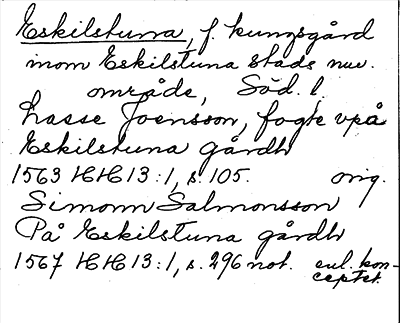 Eskilstuna, f. kungsgård
inom Eskilstuna stads nuv.
område, Söd. l.
Lasse Joensson, fogte vpå
Eskilstuna gårdh
1563 HH 13:1, s. 105. orig.
Simonn Salmonsson
På Eskilstuna gårdh
1567 HH 13:1, s. 296 not. enl. kon-
ceptet.